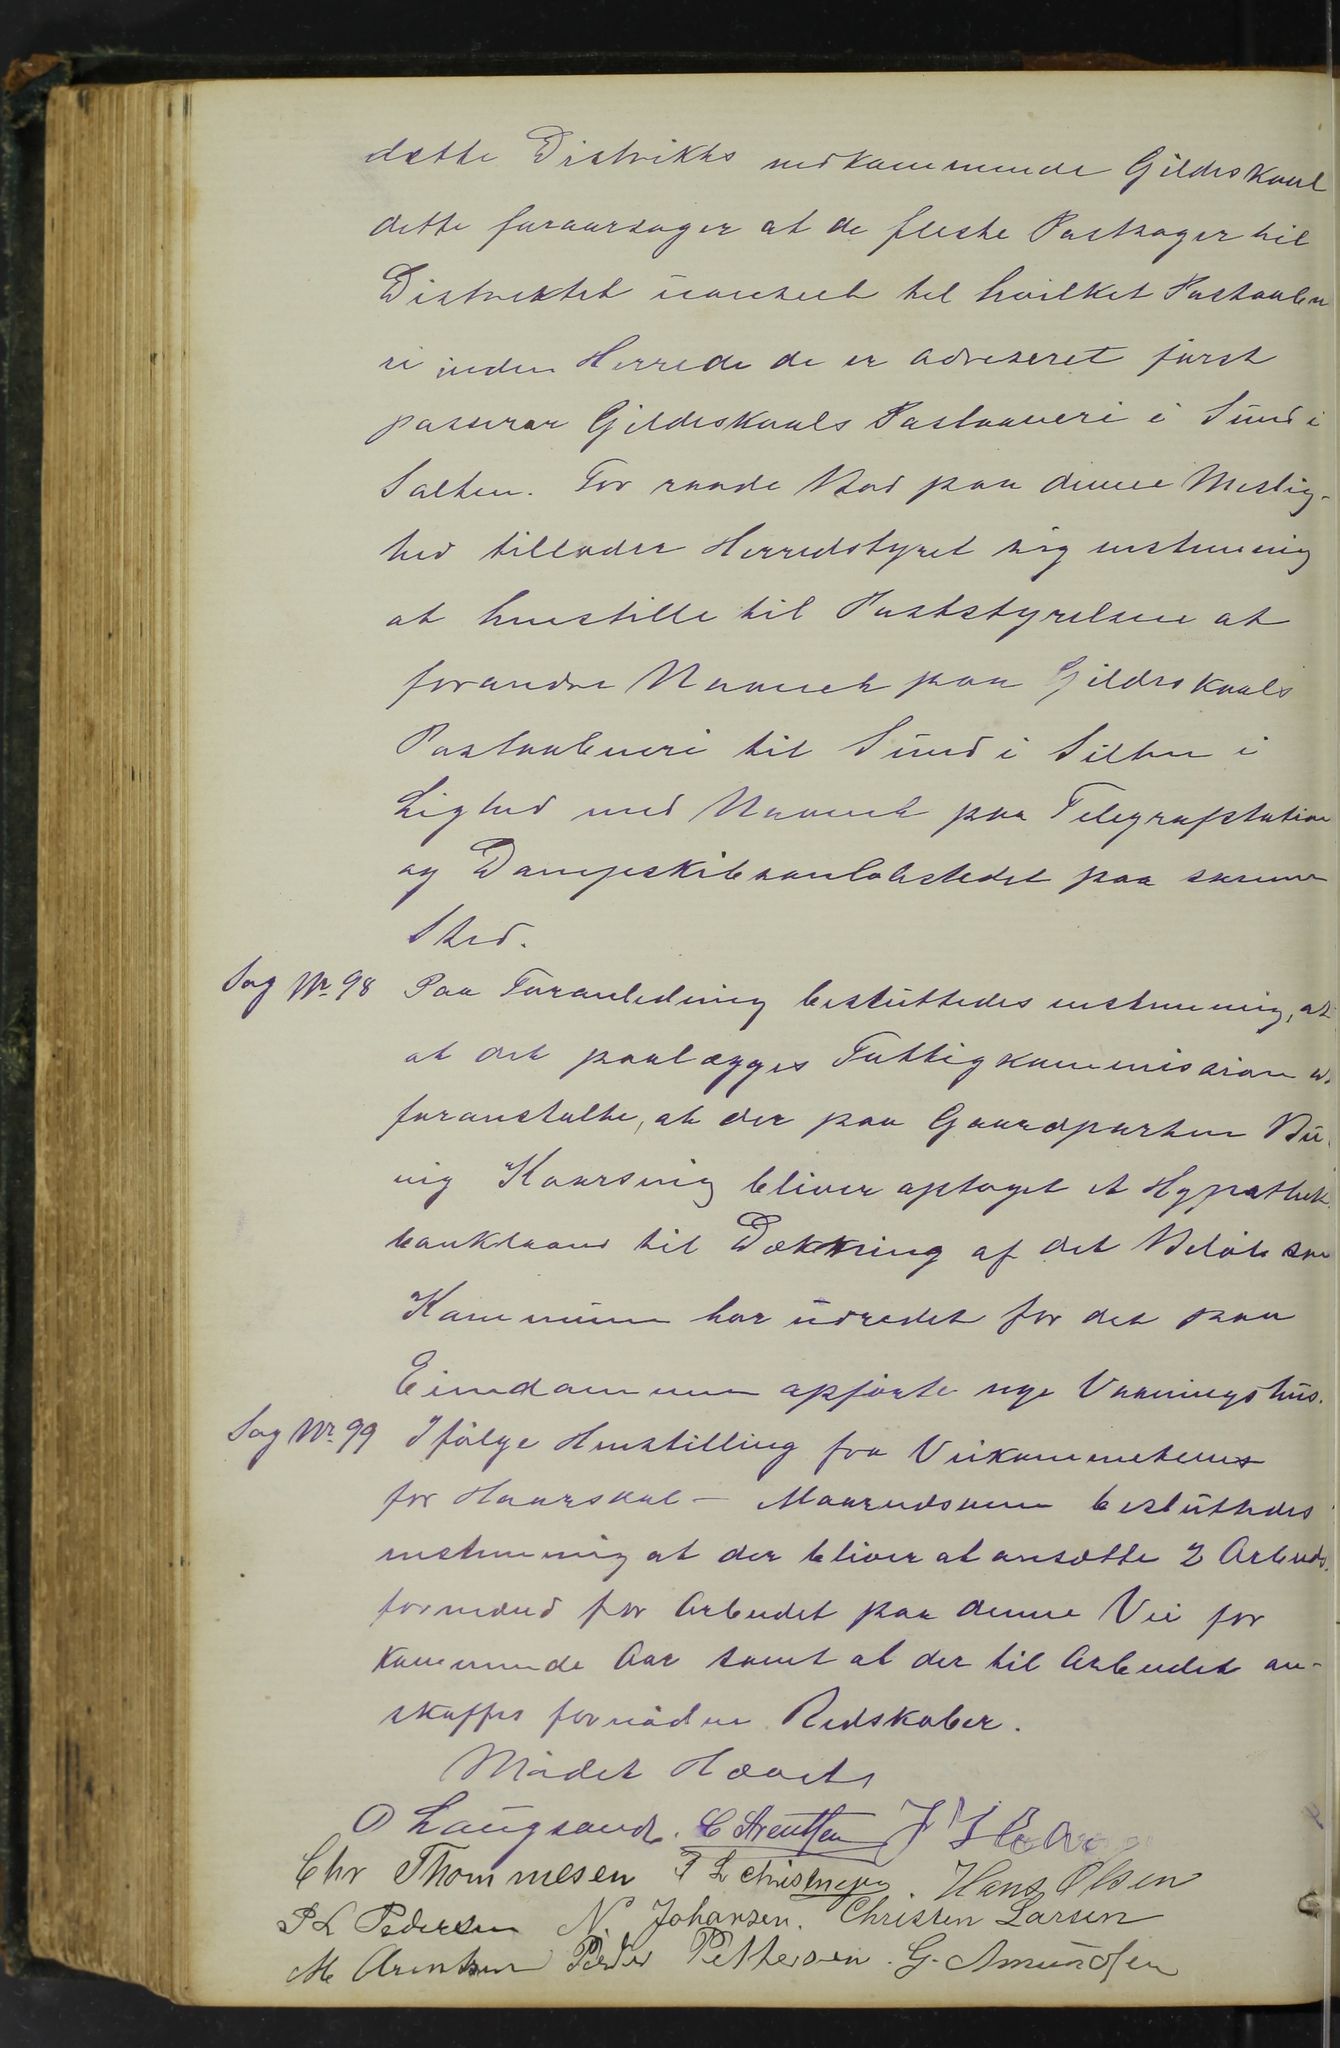 dette Distrikts vedkommende Gildeskaal
dette foraarsager at de fleste Postsager til
Distriktet uanseet til hvilket Postaabne
ri inden Herrede de er adreseret først
passerer Gildeskaals Postaaveri i Sund i
Salten. For raade Bod paa denne Mislig-
hed tillader Herredstyret sig enstemmig
at henstille til Poststyrelsen at
forandre Navnet paa Gildeskaals
Postaabneri til Sund i Salten i
Lighed med Navnet paa Telegrafstation
og Dampskibsanløbstedet paa samme
Sted.
Sag Nr. 98 Paa Foranledning besluttedes enstemmig, at
at det paalægges Fattigkommission at
foranstalte, at der paa Gaardparten
Kaarsvig bliver optaget et Hypothek
banklaan til Dækning af det Beløb som
Kommunen har udredet for det paa
Eiendommen opførte nye Vaaningshus.
Sag Nr. 99 Ifølge Henstilling fra Veikommiteens
for besluttedes
enstemmig at der bliver at ansætte 2 Arbeids
formænd for Arbeidet paa denne Vei for
kommende Aar samt at der til Arbeidet an-
skaffes fornødne Redskaber.
Mødet Hævet
O Langsand. C Arentsen
Chr Thommesen Hans Olsen
P L Pedersen N. Johansen. Christen Larsen
M Arentsen Peder Pettersen. G. Amundsen